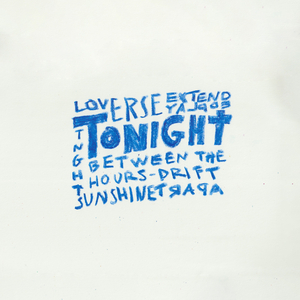 LOVERSE EXTEND
TONIGHT
BETWEEN THE
HOURS-DRIFT
SUNSHINETRAPA